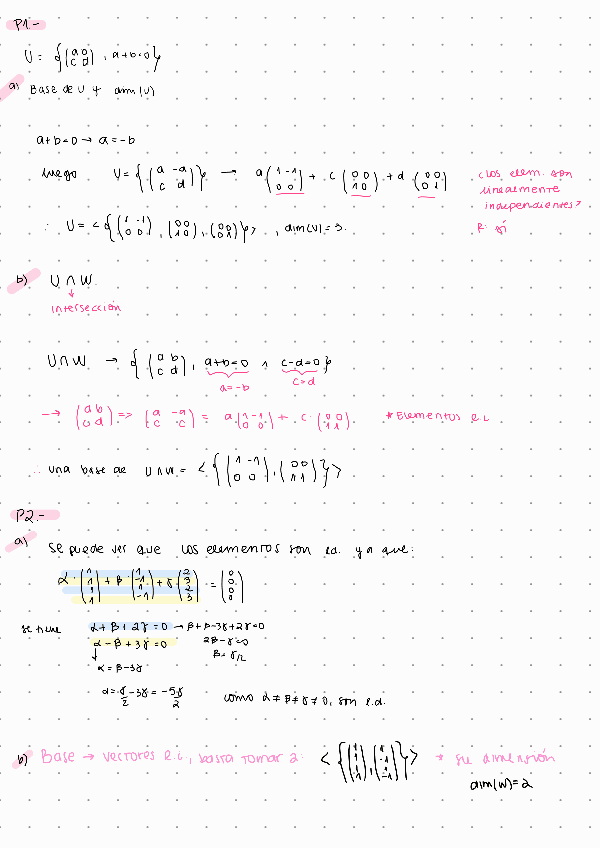 P1.-
U = {(a b / c d), a+b=0}
a) Base de U y dim(U)
a+b=0 → a=-b
luego U = {(a -a / c d)} → a(1 -1 / 0 0) + c(0 0 / 1 0) + d(0 0 / 0 1)
¿Los elem. son linealmente independientes?
R: sí
∴ U = <{(1 -1 / 0 0), (0 0 / 1 0), (0 0 / 0 1)}>, dim(U)=3.
b) U ∩ W
↓
intersección
U∩W → {(a b / c d), a+b=0 ∧ c-d=0}
a=-b c=d
→ (a b / c d) => (a -a / c c) = a(1 -1 / 0 0) + c·(0 0 / 1 1) *Elementos l.i
∴ una base de U∩W = <{(1 -1 / 0 0), (0 0 / 1 1)}>
P2.-
a) Se puede ver que los elementos son l.d. ya que:
α·(1 / 1 / 1 / 1) + β·(1 / -1 / 1 / -1) + γ·(2 / 3 / 2 / 3) = (0 / 0 / 0 / 0)
se tiene α+β+2γ=0 → β+β-3γ+2γ=0
α-β+3γ=0 2β-γ=0
↓ β=γ/2
α=β-3γ
α=γ/2-3γ=-5γ/2 como α≠β≠γ≠0, son l.d.
b) Base → vectores l.i, basta tomar 2: <{(1 / 1 / 1 / 1), (1 / -1 / 1 / -1)}> * su dimensión
dim(W)=2